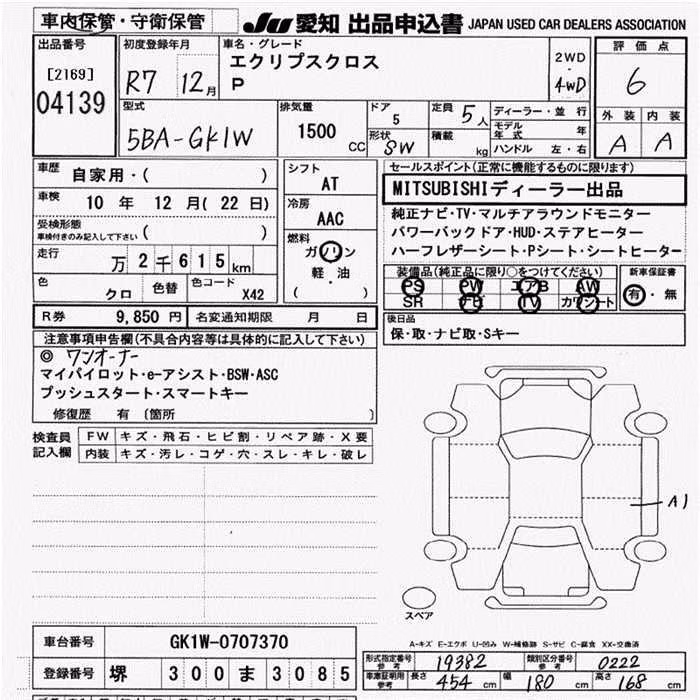 車内保管・守衛保管
JU 愛知 出品申込書 JAPAN USED CAR DEALERS ASSOCIATION
出品番号
[2169]
04139
初度登録年月
R7 12月
車名・グレード
エクリプスクロス
P
2WD
・
4WD
評価点
6
外装 内装
A A
型式
5BA-GK1W
排気量
1500 CC
ドア
5
形状
SW
定員 5人
積載 kg
ディーラー・並行
モデル年式 年
ハンドル 左・右
車歴 自家用・( )
車検 10 年 12 月( 22 日)
受検形態
車検付きのみ記入して下さい ( )
走行 万 2 千 6 1 5 km
色 クロ 色替 色コード X42
シフト
AT
冷房
AAC
燃料
ガソリン
軽・油
( )
セールスポイント(正常に機能するものに限ります)
MITSUBISHIディーラー出品
純正ナビ・TV・マルチアラウンドモニター
パワーバックドア・HUD・ステアヒーター
ハーフレザーシート・Pシート・シートヒーター
装備品(純正品に限り○をつけてください)
PS PW エアB AW
SR TV カワシート
新車保証書
有・無
R券 9,850 円 名変通知期限 月 日
後日品
保・取・ナビ取・Sキー
注意事項申告欄(不具合内容等は具体的に記入して下さい)
◎ ワンオーナー
マイパイロット・e-アシスト・BSW・ASC
プッシュスタート・スマートキー
修復歴 有 (箇所 )
検査員記入欄
FW キズ・飛石・ヒビ割・リペア跡・X要
内装 キズ・汚レ・コゲ・穴・スレ・キレ・破レ
A1
スペア
A-キズ E-エクボ U-凹み W-補修跡 S-サビ C-腐食 XX-交換済
車台番号 GK1W-0707370
登録番号 堺 300 ま 3085
形式指定番号 参考 19382 類別区分番号 参考 0222
車庫証明用 参考 長さ 454 cm 幅 180 cm 高さ 168 cm